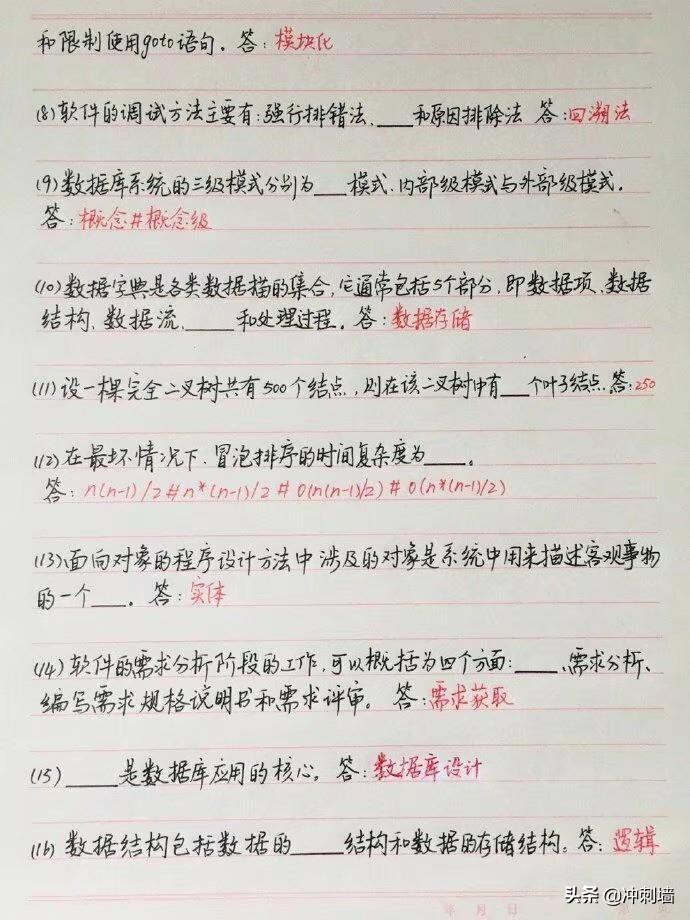 和限制使用goto语句。答：模块化
(8)软件的调试方法主要有：强行排错法、____和原因排除法 答：回溯法
(9)数据库系统的三级模式分别为___模式、内部级模式与外部级模式。
答：概念#概念级
(10)数据字典是各类数据描的集合，它通常包括5个部分，即数据项、数据
结构、数据流、____和处理过程。答：数据存储
(11)设一棵完全二叉树共有500个结点，则在该二叉树中有___个叶子结点.答：250
(12)在最坏情况下、冒泡排序的时间复杂度为____。
答：n(n-1)/2#n*(n-1)/2#O(n(n-1)/2)#O(n*(n-1)/2)
(13)面向对象的程序设计方法中涉及的对象是系统中用来描述客观事物
的一个___。答：实体
(14)软件的需求分析阶段的工作，可以概括为四个方面：____、需求分析、
编写需求规格说明书和需求评审。答：需求获取
(15)____是数据库应用的核心。答：数据库设计
(16)数据结构包括数据的____结构和数据的存储结构。答：逻辑
年 月 日
头条 @冲刺墙